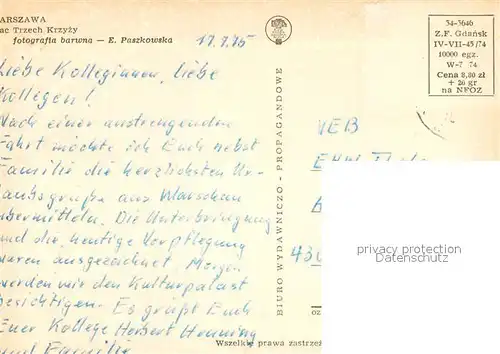 ARSZAWA
ac Trzech Krzyży
fotografia barwna — E. Paszkowska
17.9.75
Liebe Kolleginnen, liebe
Kollegen!
Nach einer anstrengenden
Fahrt möchte ich Euch nebst
Familie die herzlichsten Ur-
laubsgrüße aus Warschau
übermitteln. Die Unterbringung
und die heutige Verpflegung
waren ausgezeichnet. Morgen
werden wir den Kulturpalast
besichtigen. Es grüßt Euch
Euer Kollege Herbert
und Familie
BIURO WYDAWNICZO - PROPAGANDOWE
34-3646
Z.F. Gdańsk
IV-VII-45/74
10000 egz.
W-7 74
Cena 8,80 zł
+ 20 gr
na NFOZ
VEB
430
privacy protection
personal data
oz
Wszelkie prawa zastrzeż